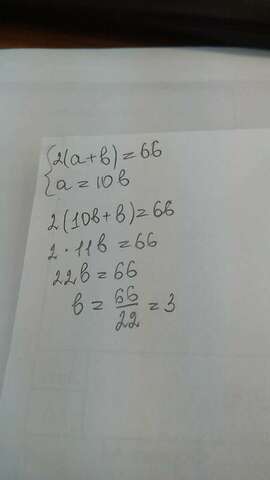 {2(a+b)=66
a=10b
2(10b+b)=66
2·11b=66
22b=66
b=66/22=3